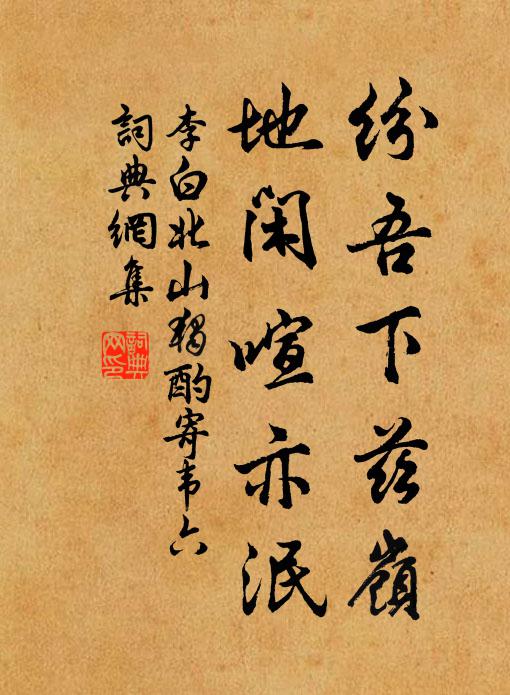 紛吾下茲嶺
地閑喧亦泯
李白北山獨酌寄韋六
詞典網集
詞典
网印